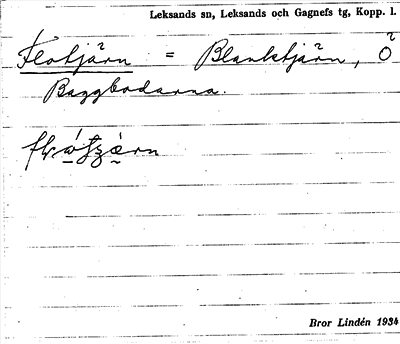 Leksands sn, Leksands och Gagnefs tg, Kopp. l.
Flotjärn = Blanktjärn, Ö
Baggbodarna.
Bror Lindén 1934